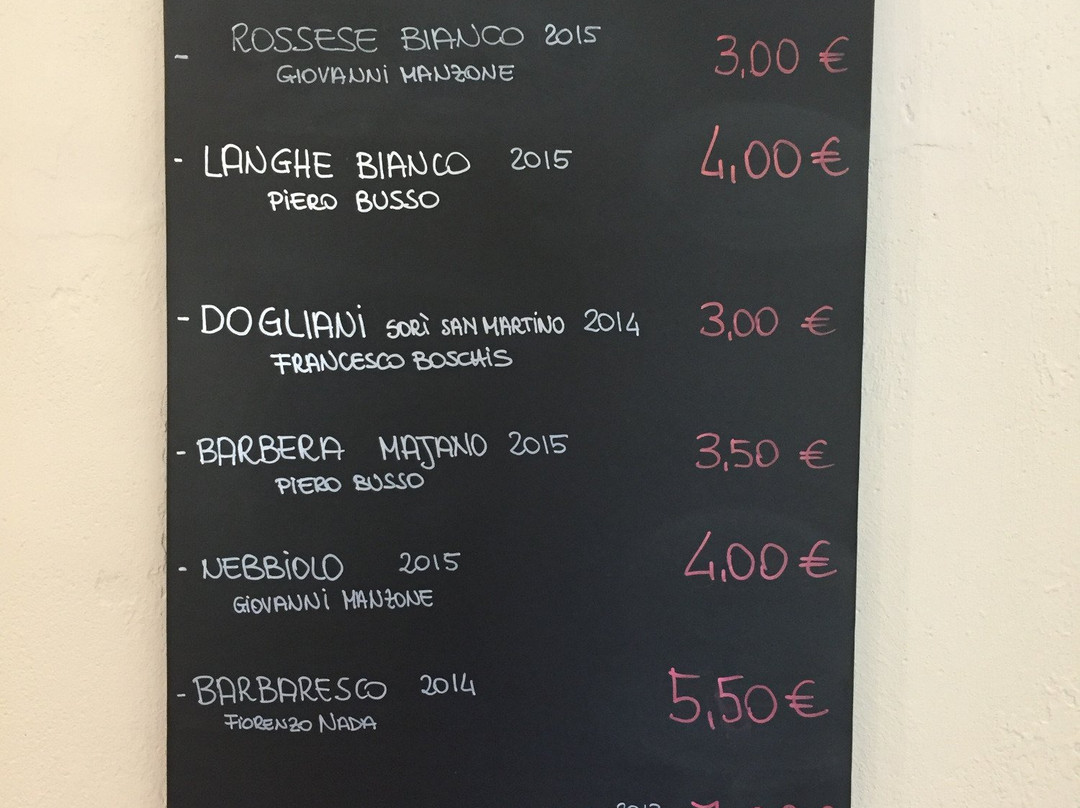 - ROSSESE BIANCO 2015 3,00 €
GIOVANNI MANZONE
- LANGHE BIANCO 2015 4,00 €
PIERO BUSSO
- DOGLIANI SORÌ SAN MARTINO 2014 3,00 €
FRANCESCO BOSCHIS
- BARBERA MAJANO 2015 3,50 €
PIERO BUSSO
- NEBBIOLO 2015 4,00 €
GIOVANNI MANZONE
- BARBARESCO 2014 5,50 €
FIORENZO NADA